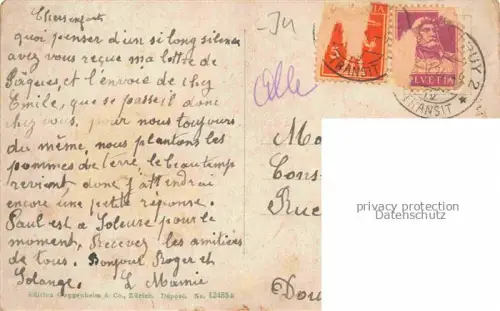 Chers enfants
quoi penser d'un si long silence
avez vous reçue ma lettre de
Pâques, et l'envoie de chez
Emile, que se passeil donc
chez vous, pour nous toujours
du même, nous plantons les
pommes de terre, le beau temps
revient donc j'attendrai
encore une petite réponse.
Paul est a Soleure pour le
moment, Recevez les amitiées
de tous. Bonjour Roger et
Solange. L Mamie
Edition Guggenheim & Co., Zürich. Déposé. No. 12485
Alle
5
HELVETIA
TRANSIT
TRANSIT
Mo
Cons
Rue
Dou
privacy protection
Datenschutz